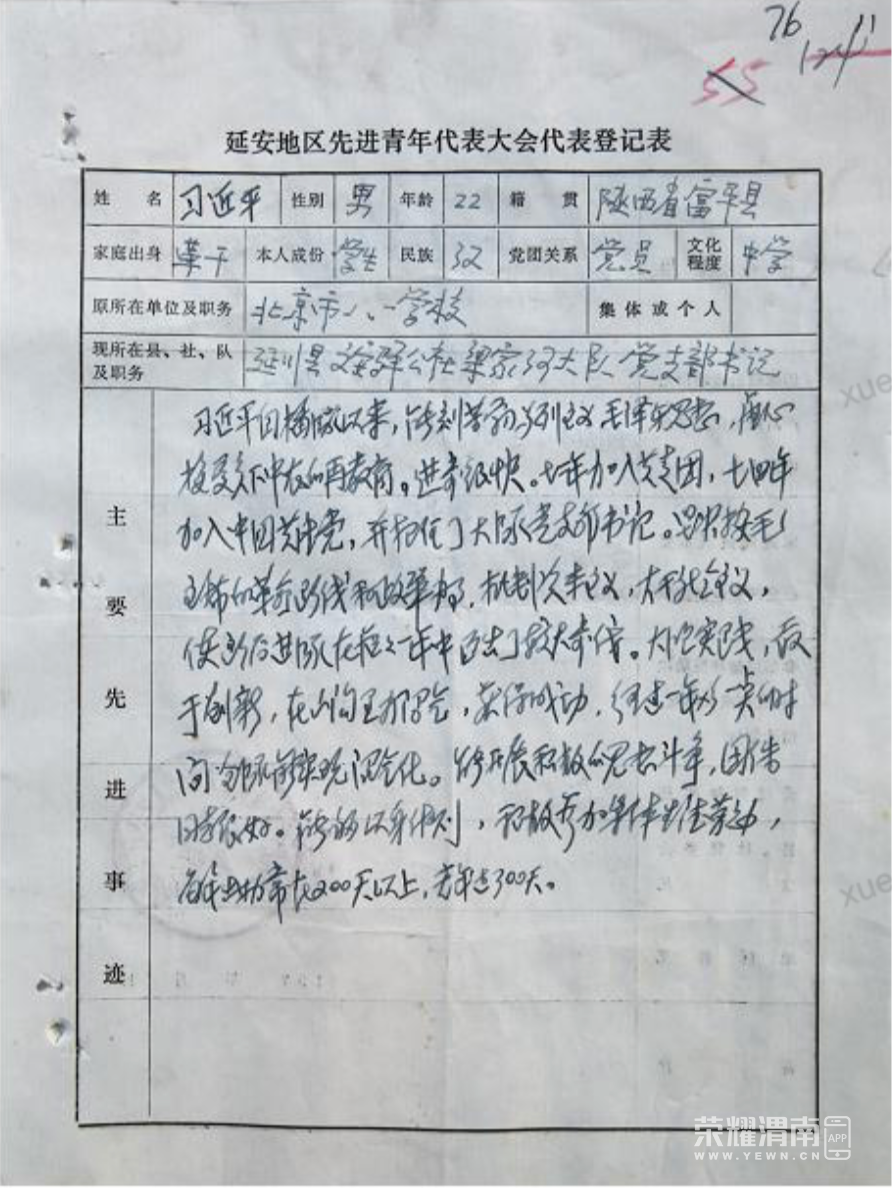 76
55
124
11
延安地区先进青年代表大会代表登记表
姓 名 习近平 性别 男 年龄 22 籍 贯 陕西省富平县
家庭出身 革干 本人成份 学生 民族 汉 党团关系 党员 文化程度 中学
原所在单位及职务 北京市八一学校 集体或个人
现所在县、社、队及职务 延川县文安驿公社梁家河大队 党支部书记
主要先进事迹
习近平自插队以来，能刻苦学习马列主义毛泽东思想，虚心
接受贫下中农的再教育。进步很快。七三年加入共青团，七四年
加入中国共产党，并担任了大队党支部书记。坚决按毛
主席的革命路线和政策办事，批判资本主义，大干社会主义，
使后进队在一年中迈出了较大步伐。大胆实践，敢
于创新，在山沟里办沼气，获得成功，经过一年多一点的时
间全队实现沼气化。能开展积极的思想斗争，团结
同志很好。能够以身作则，积极参加集体生产劳动，
每年出勤常在200天以上，去年达300天。
xue
xue
荣耀渭南
APP
WWW.YEWN.CN